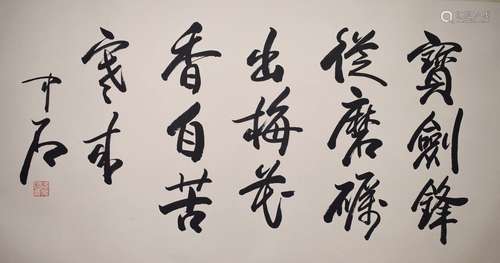 寶劍鋒
從磨礪
出梅花
香自苦
寒来
中石